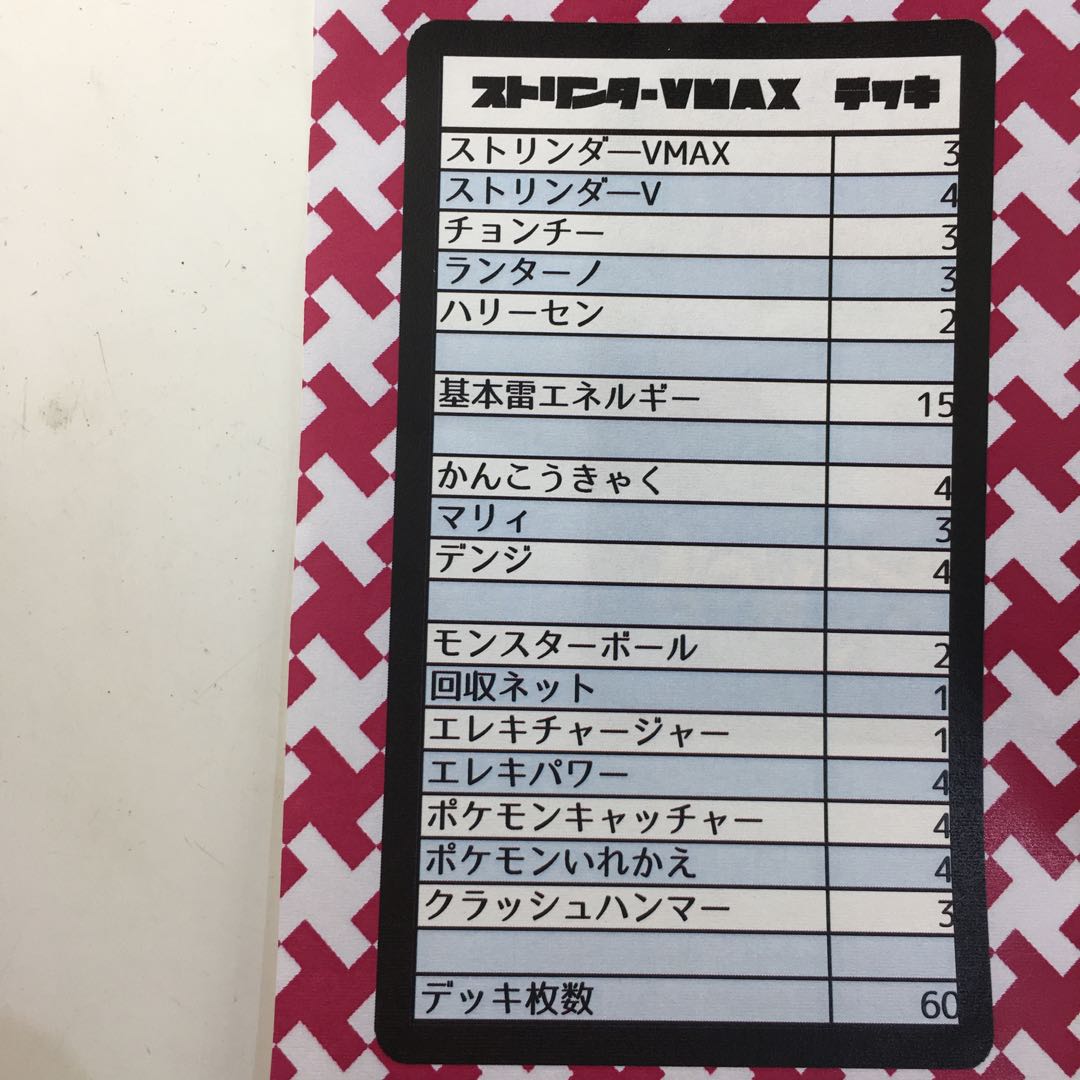 ストリンダーVMAX デッキ
ストリンダーVMAX 3
ストリンダーV 4
チョンチー 3
ランターン 3
ハリーセン 2
基本雷エネルギー 15
かんこうきゃく 4
マリィ 3
デンジ 4
モンスターボール 2
回収ネット 1
エレキチャージャー 1
エレキパワー 4
ポケモンキャッチャー 4
ポケモンいれかえ 4
クラッシュハンマー 3
デッキ枚数 60